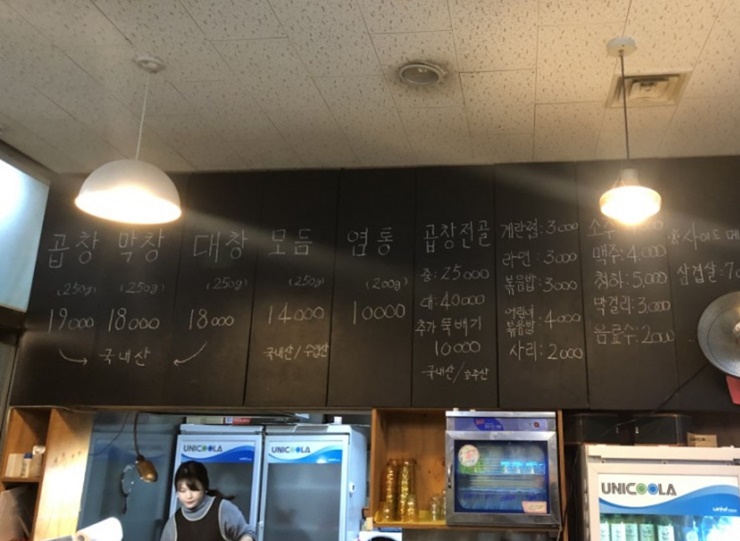 곱창
(250g)
19000
막창
(250g)
18000
국내산
대창
(250g)
18000
모듬
(250g)
14000
국내산/수입산
염통
(200g)
10000
곱창전골
중: 25000
대: 40000
추가 뚝배기
10000
국내산/호주산
계란찜: 3000
라면: 3000
볶음밥: 3000
어린이
볶음밥: 4000
사리: 2000
소주:
맥주: 4,000
청하: 5,000
막걸리: 3,000
음료수: 2000
사이드 메
삼겹살: 70
UNICOOLA
UNICOOLA
UNICOOLA